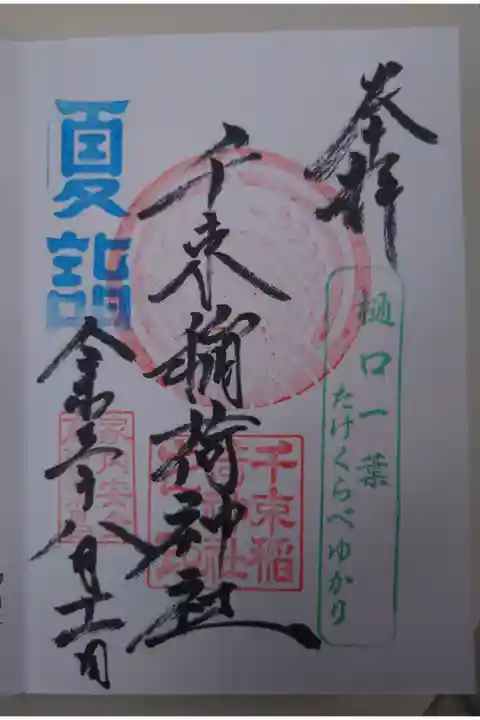 奉拝
樋口一葉
たけくらべゆかり
千束稲荷神社
千束稲
荷神社
夏詣
家内安全
令和三年八月十一日